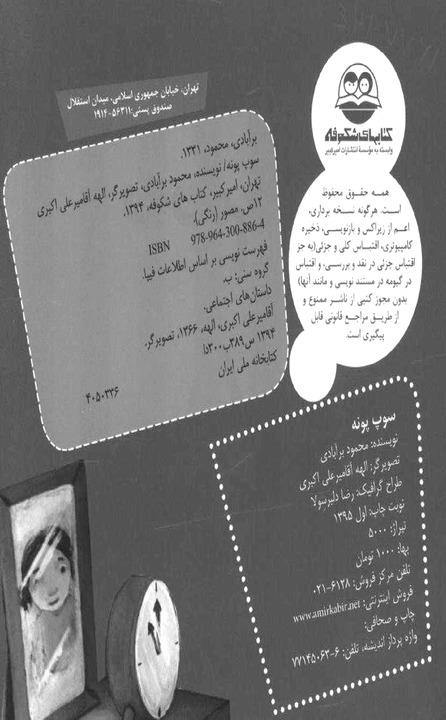 کتابهای شکوفه
وابسته به مؤسسهٔ انتشارات امیرکبیر
همه حقوق محفوظ
است. هرگونه نسخه برداری،
اعم از زیراکس و بازنویسی، ذخیره
کامپیوتری، اقتباس کلی و جزئی(به جز
اقتباس جزئی در نقد و بررسی، و اقتباس
در گیومه در مستند نویسی و مانند آنها)
بدون مجوز کتبی از ناشر ممنوع و
از طریق مراجع قانونی قابل
پیگیری است.
تهران، خیابان جمهوری اسلامی، میدان استقلال
صندوق پستی: ۵۶۳۱۱-۱۹۱۴
برآبادی، محمود، ۱۳۳۱.
سوپ پونه/ نویسنده، محمود برآبادی، تصویرگر، الهه آقامیرعلی اکبری
تهران، امیرکبیر، کتاب های شکوفه، ۱۳۹۴.
۱۲ص. مصور (رنگی).
ISBN 978-964-300-886-4
فهرست نویسی بر اساس اطلاعات فیپا.
گروه سنی: ب.
داستان‌های اجتماعی.
آقامیرعلی اکبری، الهه، ۱۳۶۶، تصویرگر.
۱۳۹۴ س۳۸۹ب۳۰۰دا
کتابخانه ملی ایران
۴۰۵۰۳۳۶
سوپ پونه
نویسنده: محمود برآبادی
تصویرگر: الهه آقامیرعلی اکبری
طراح گرافیک: رضا دلیرسولا
نوبت چاپ: اول ۱۳۹۵
تیراژ: ۵۰۰۰
بها: ۱۰۰۰ تومان
تلفن مرکز فروش: ۶۱۲۸-۰۲۱
فروش اینترنتی: www.amirkabir.net
چاپ و صحافی:
واژه پرداز اندیشه، تلفن: ۶-۷۷۱۴۵۰۶۳